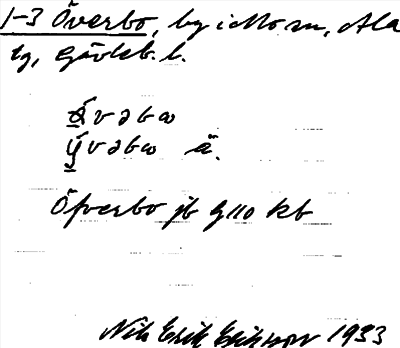 1-3 Överbo, by i Mo sn, Ala
tg, Gävleb. l.
vəbω
ý̱vəbω ä.
Öfverbo jb G110 kb
Nils Erik Eriksson 1933